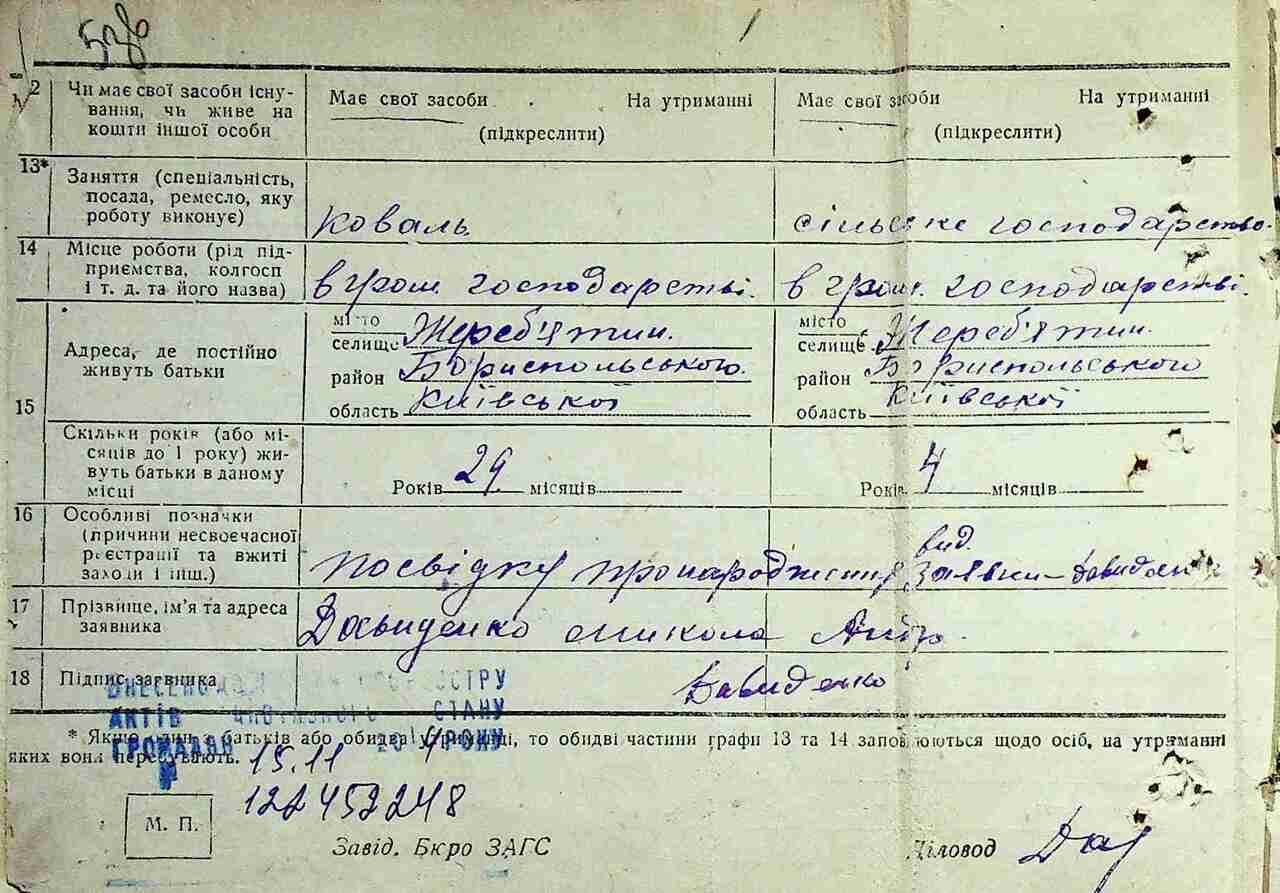 538
12 Чи має свої засоби існу-
вання, чи живе на
кошти іншої особи
Має свої засоби На утриманні
(підкреслити)
Має свої засоби На утриманні
(підкреслити)
13* Заняття (спеціальність,
посада, ремесло, яку
роботу виконує)
Коваль
сільське господарство.
14 Місце роботи (рід під-
приємства, колгосп
і т. д. та його назва)
в гром. господарстві.
в гром. господарстві.
15 Адреса, де постійно
живуть батьки
місто
селище Жереб'ятин.
район Бориспольського.
область Київської
місто
селище с. Жереб'ятин.
район Бориспольського
область Київської
Скільки років (або мі-
сяців до 1 року) жи-
вуть батьки в даному
місці
Років 29 місяців
Років 4 місяців
16 Особливі позначки
(причини несвоєчасної
реєстрації та вжиті
заходи і інш.)
вид.
посвідку про народження заявки-
17 Прізвище, ім'я та адреса
заявника
Давиденко Микола
18 Підпис заявника
Давиденко
ВНЕСЕНО ДО РЕЄСТРУ
АКТІВ ЦИВІЛЬНОГО СТАНУ
ГРОМАДЯН 20 РОКУ
* Якщо один з батьків або обидва утриманці, то обидві частини графи 13 та 14 заповнюються щодо осіб, на утриманні
яких вони перебувають.
15.11
№ 122452248
М. П.
Завід. Бюро ЗАГС
Діловод